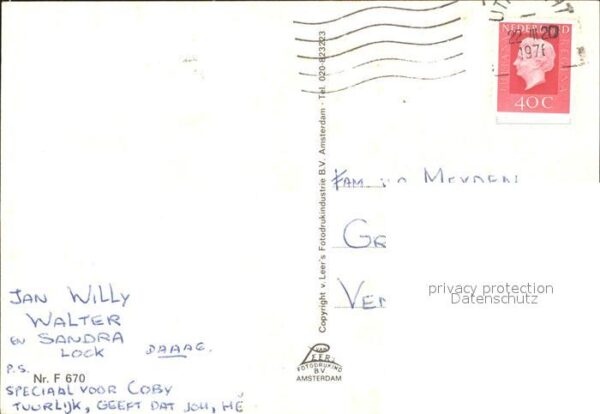 UTRECHT
NEDERLAND
1976
40C
Copyright v. Leer's Fotodrukindustrie B.V. Amsterdam - Tel. 020-823223
FAM
GR
VE
privacy protection
Datenschutz
JAN WILLY
WALTER
EN SANDRA
LOCK DAAAG.
P.S.
Nr. F 670
SPECIAAL VOOR COBY
TUURLIJK, GEEFT DAT JOH, HÉ
VAN
LEER
FOTODRUKIND
BV
AMSTERDAM